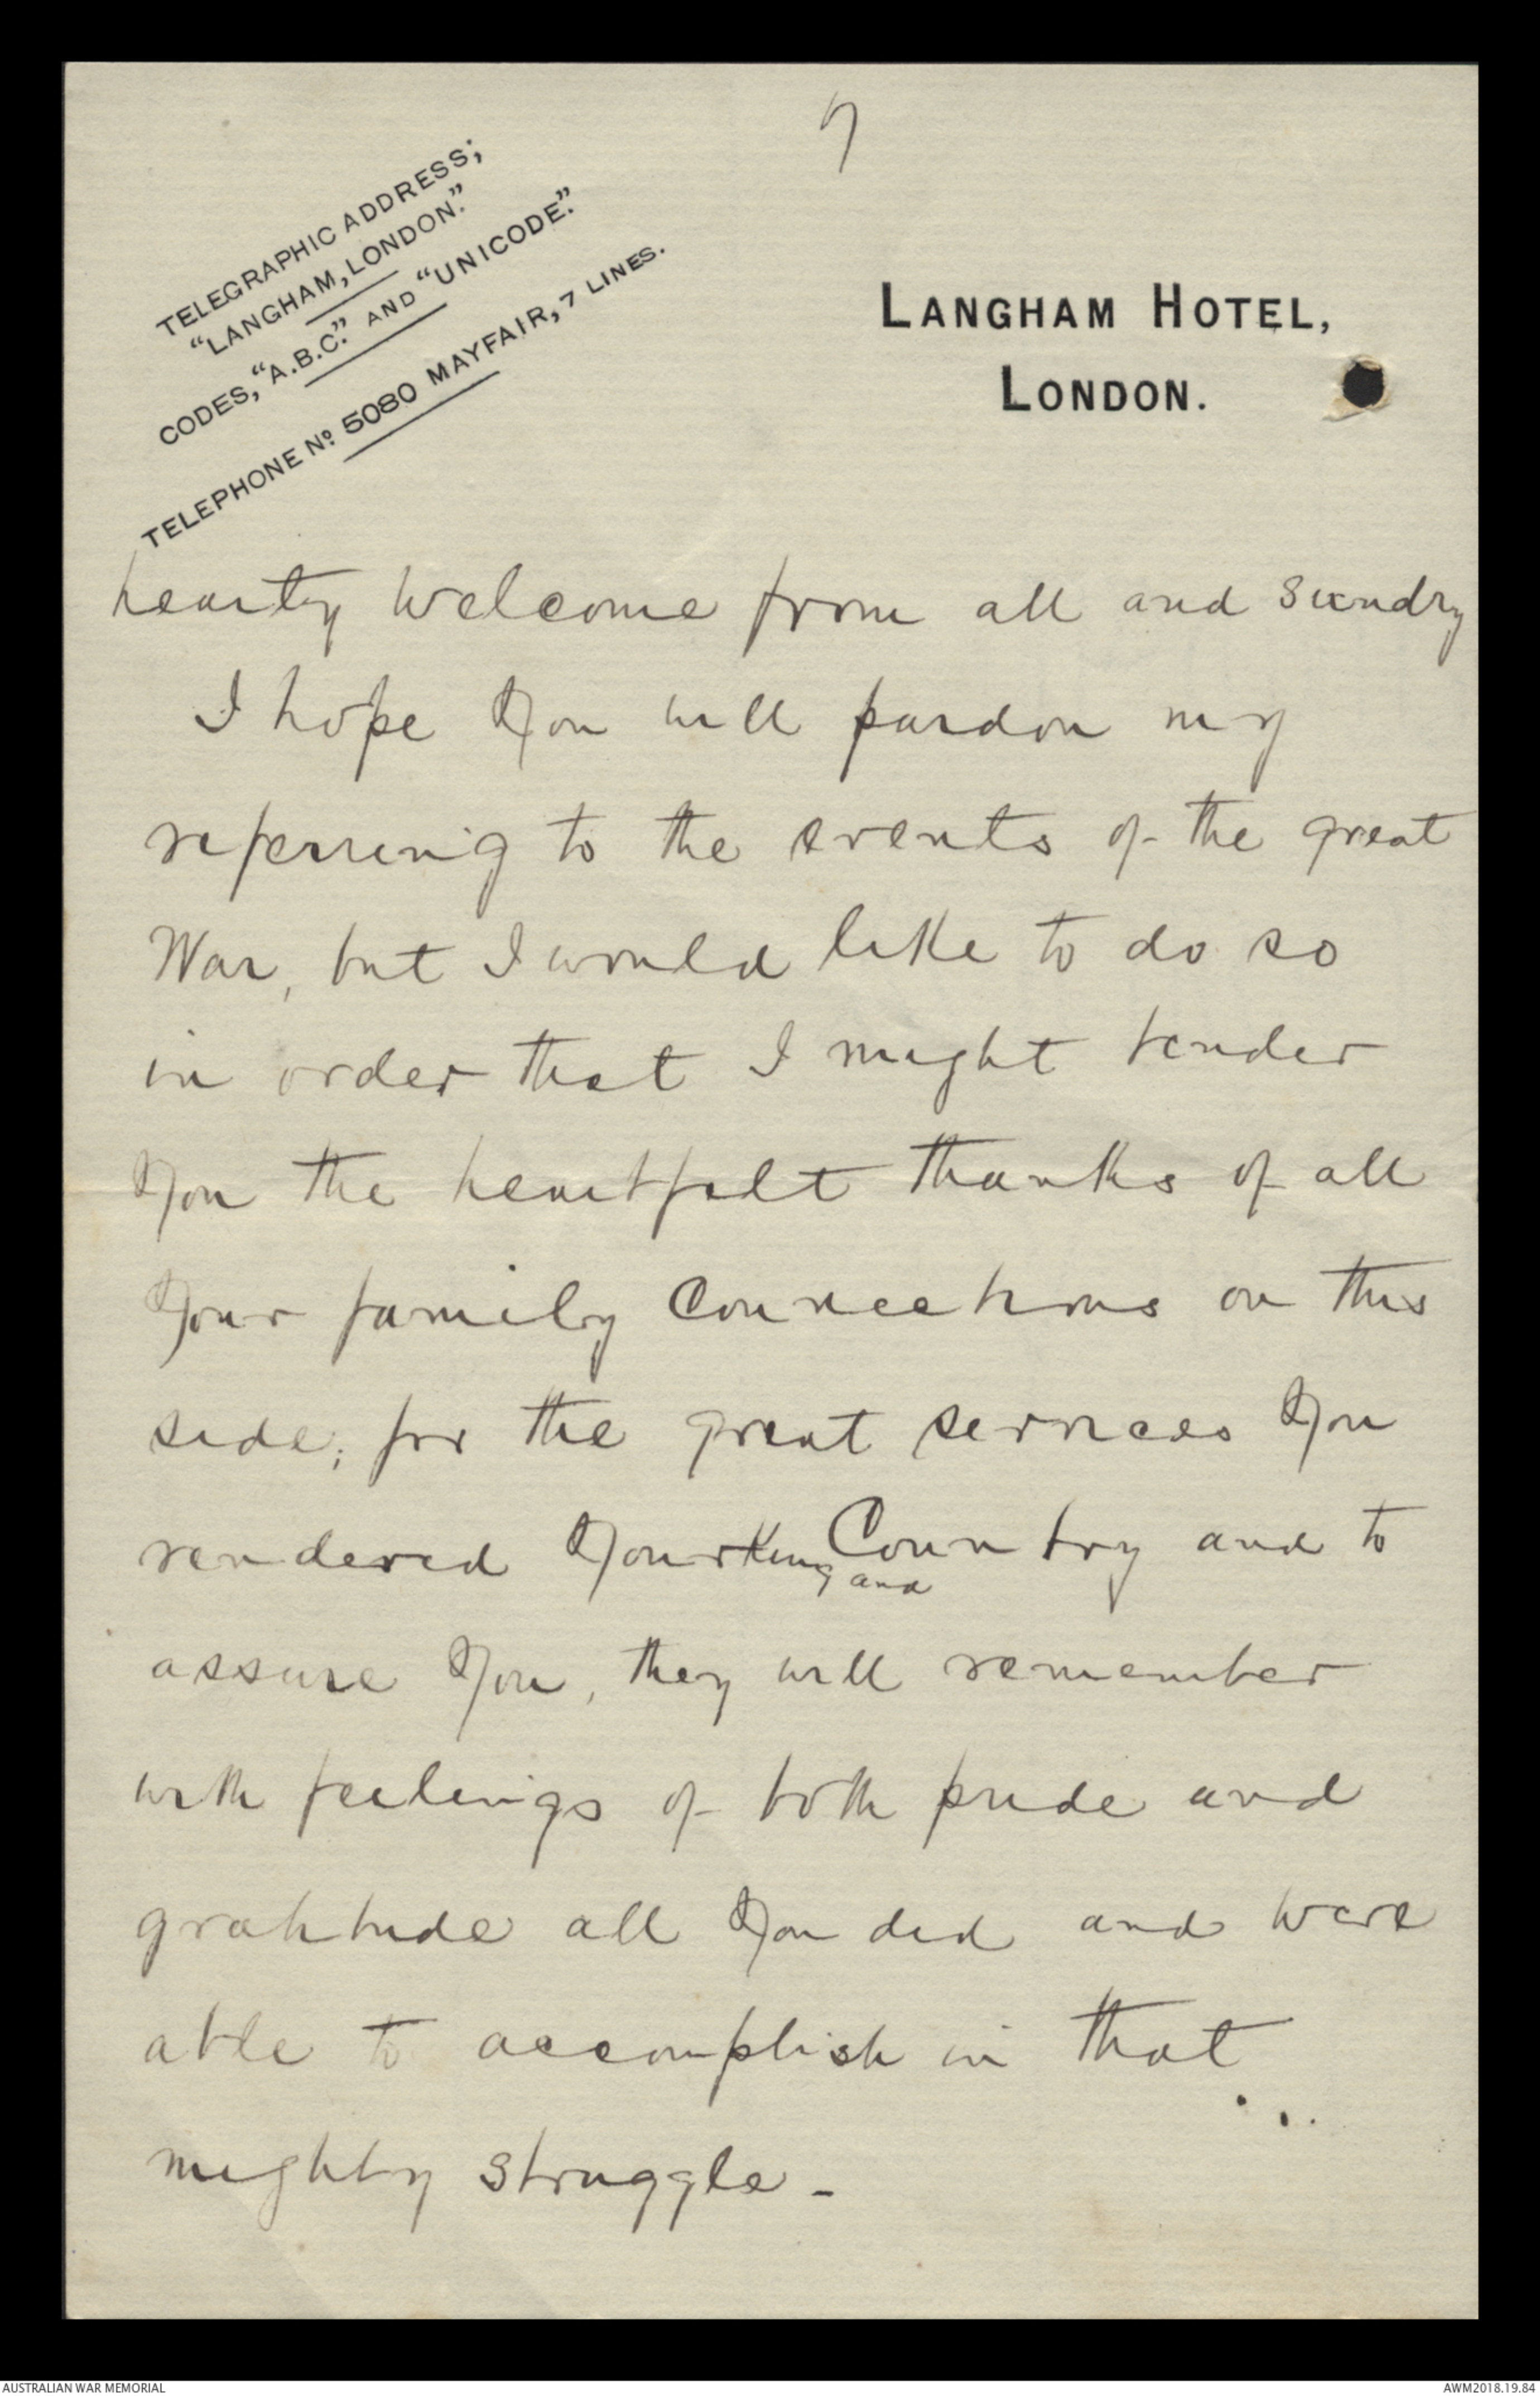 7
TELEGRAPHIC ADDRESS;
"LANGHAM, LONDON."
CODES, "A.B.C." AND "UNICODE."
TELEPHONE No. 5080 MAYFAIR, 7 LINES.
LANGHAM HOTEL,
LONDON.
hearty welcome from all and sundry
I hope You will pardon my
referring to the events of the great
War, but I would like to do so
in order that I might tender
You the heartfelt thanks of all
Your family Connections on this
side; for the great services You
rendered Your King and Country and to
assure You, they will remember
with feelings of both pride and
gratitude all You did and were
able to accomplish in that
mighty struggle -
AUSTRALIAN WAR MEMORIAL
AWM2018.19.84